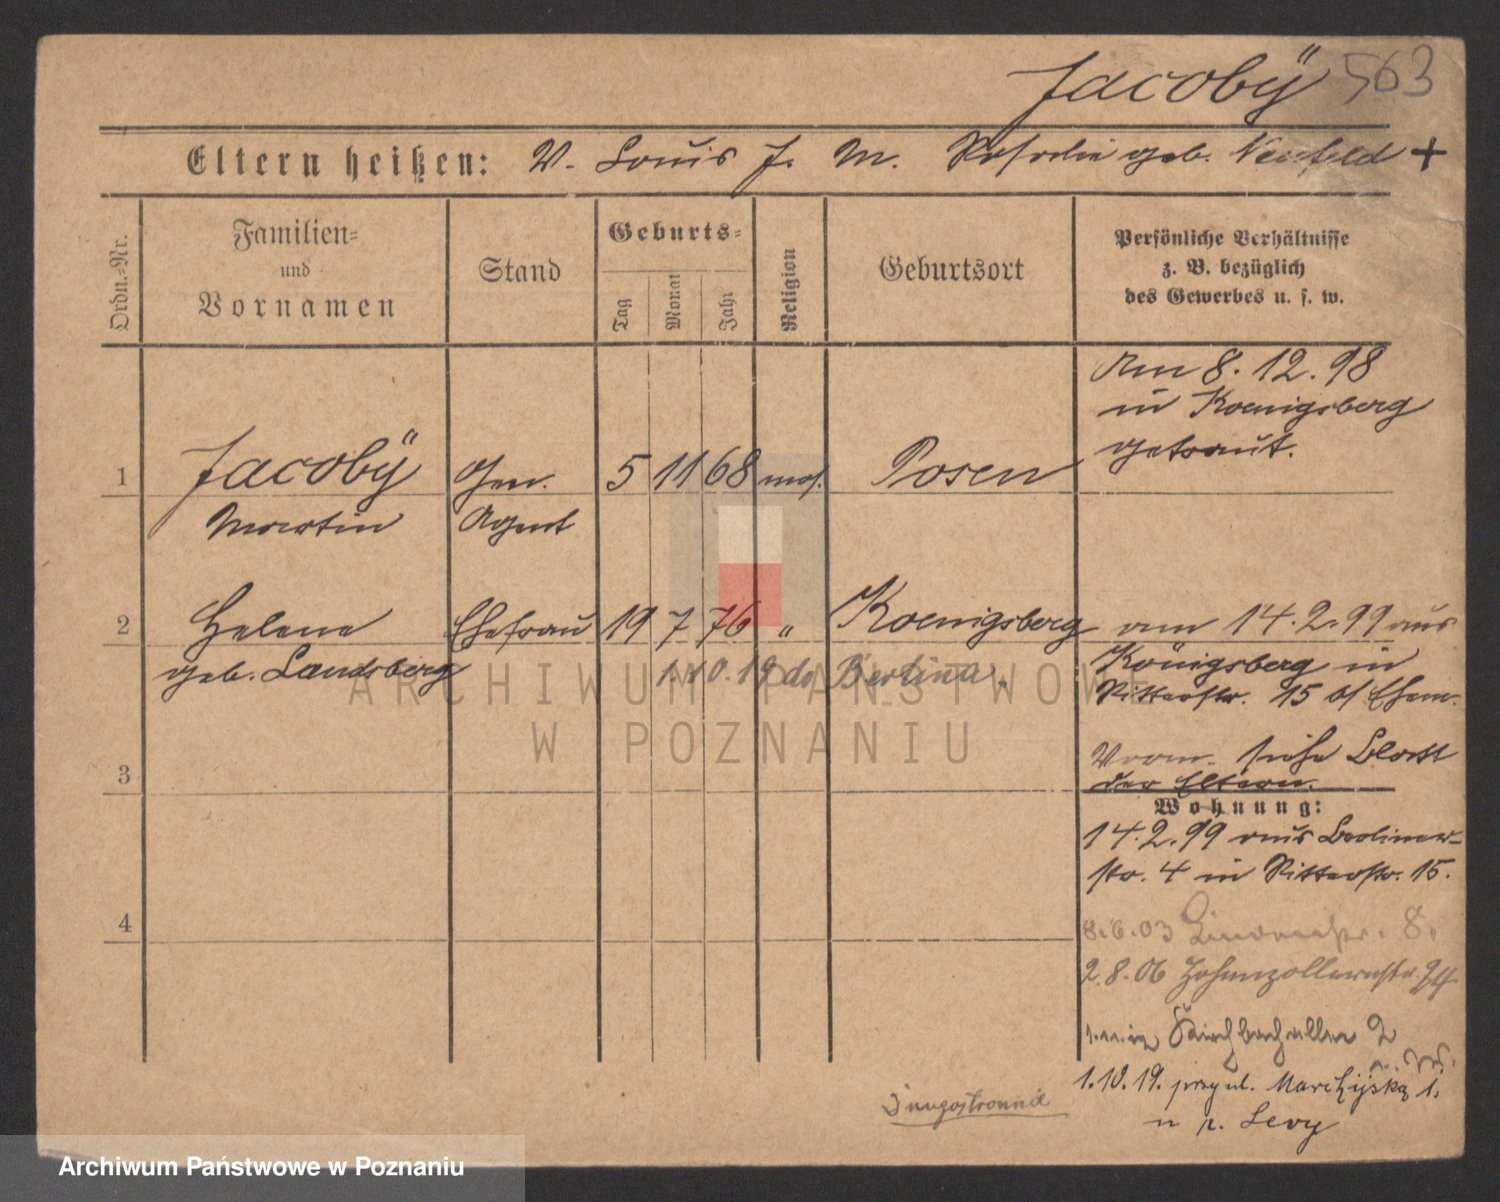 Jacoby 563
Eltern heißen: V. Louis J. M. Rosalie geb. Neufeld +
Ordn.-Nr.
Familien-
und
Vornamen
Stand
Geburts-
Tag
Monat
Jahr
Religion
Geburtsort
Persönliche Verhältnisse
z. B. bezüglich
des Gewerbes u. s. w.
Am 8.12.98
in Koenigsberg
getraut.
1 Jacoby Gen. 5 11 68 mos. Posen
Martin Agent
2 Helene Ehefrau 19 7 76 " Koenigsberg am 14.2.99 aus
geb. Landsberg 1.10.19 do Berlina
Königsberg in
Ritterstr. 15 b/ Ehem.
Vorm. siehe Blatt
der Eltern.
3
Wohnung:
14.2.99 aus Berliner-
str. 4 in Ritterstr. 15.
4
8.6.03 8.
2.8.06 Hohenzollernstr. 24
Kirchbachallee 2
1.10.19. przy ul. 1.
u p. Levy
ARCHIWUM PAŃSTWOWE
W POZNANIU
Archiwum Państwowe w Poznaniu